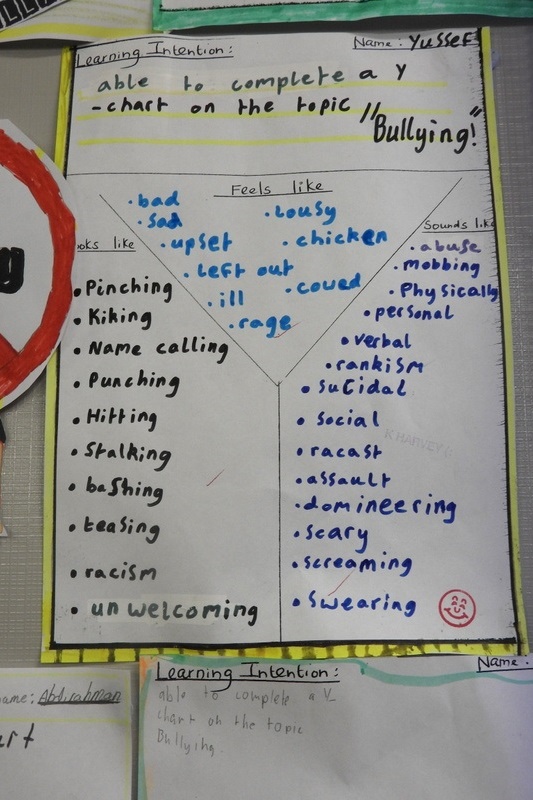 Learning Intention:
Name: Yussef
able to complete a Y
-chart on the topic
"Bullying!"
Feels like
• bad
• sad
• upset
• Left out
• ill
• rage
• Lousy
• chicken
• cowed
ooks like
• Pinching
• Kiking
• Name calling
• Punching
• Hitting
• Stalking
• bashing
• teasing
• racism
• unwelcoming
Sounds like
• abuse
• mobbing
• Physically
• personal
• verbal
• rankism
• suCidal
• social
• racast
• assault
• domineering
• scary
• screaming
• swearing
ame: Abdirahman
art
Learning Intention:
Name:
able to complete a Y
chart on the topic
Bullying.